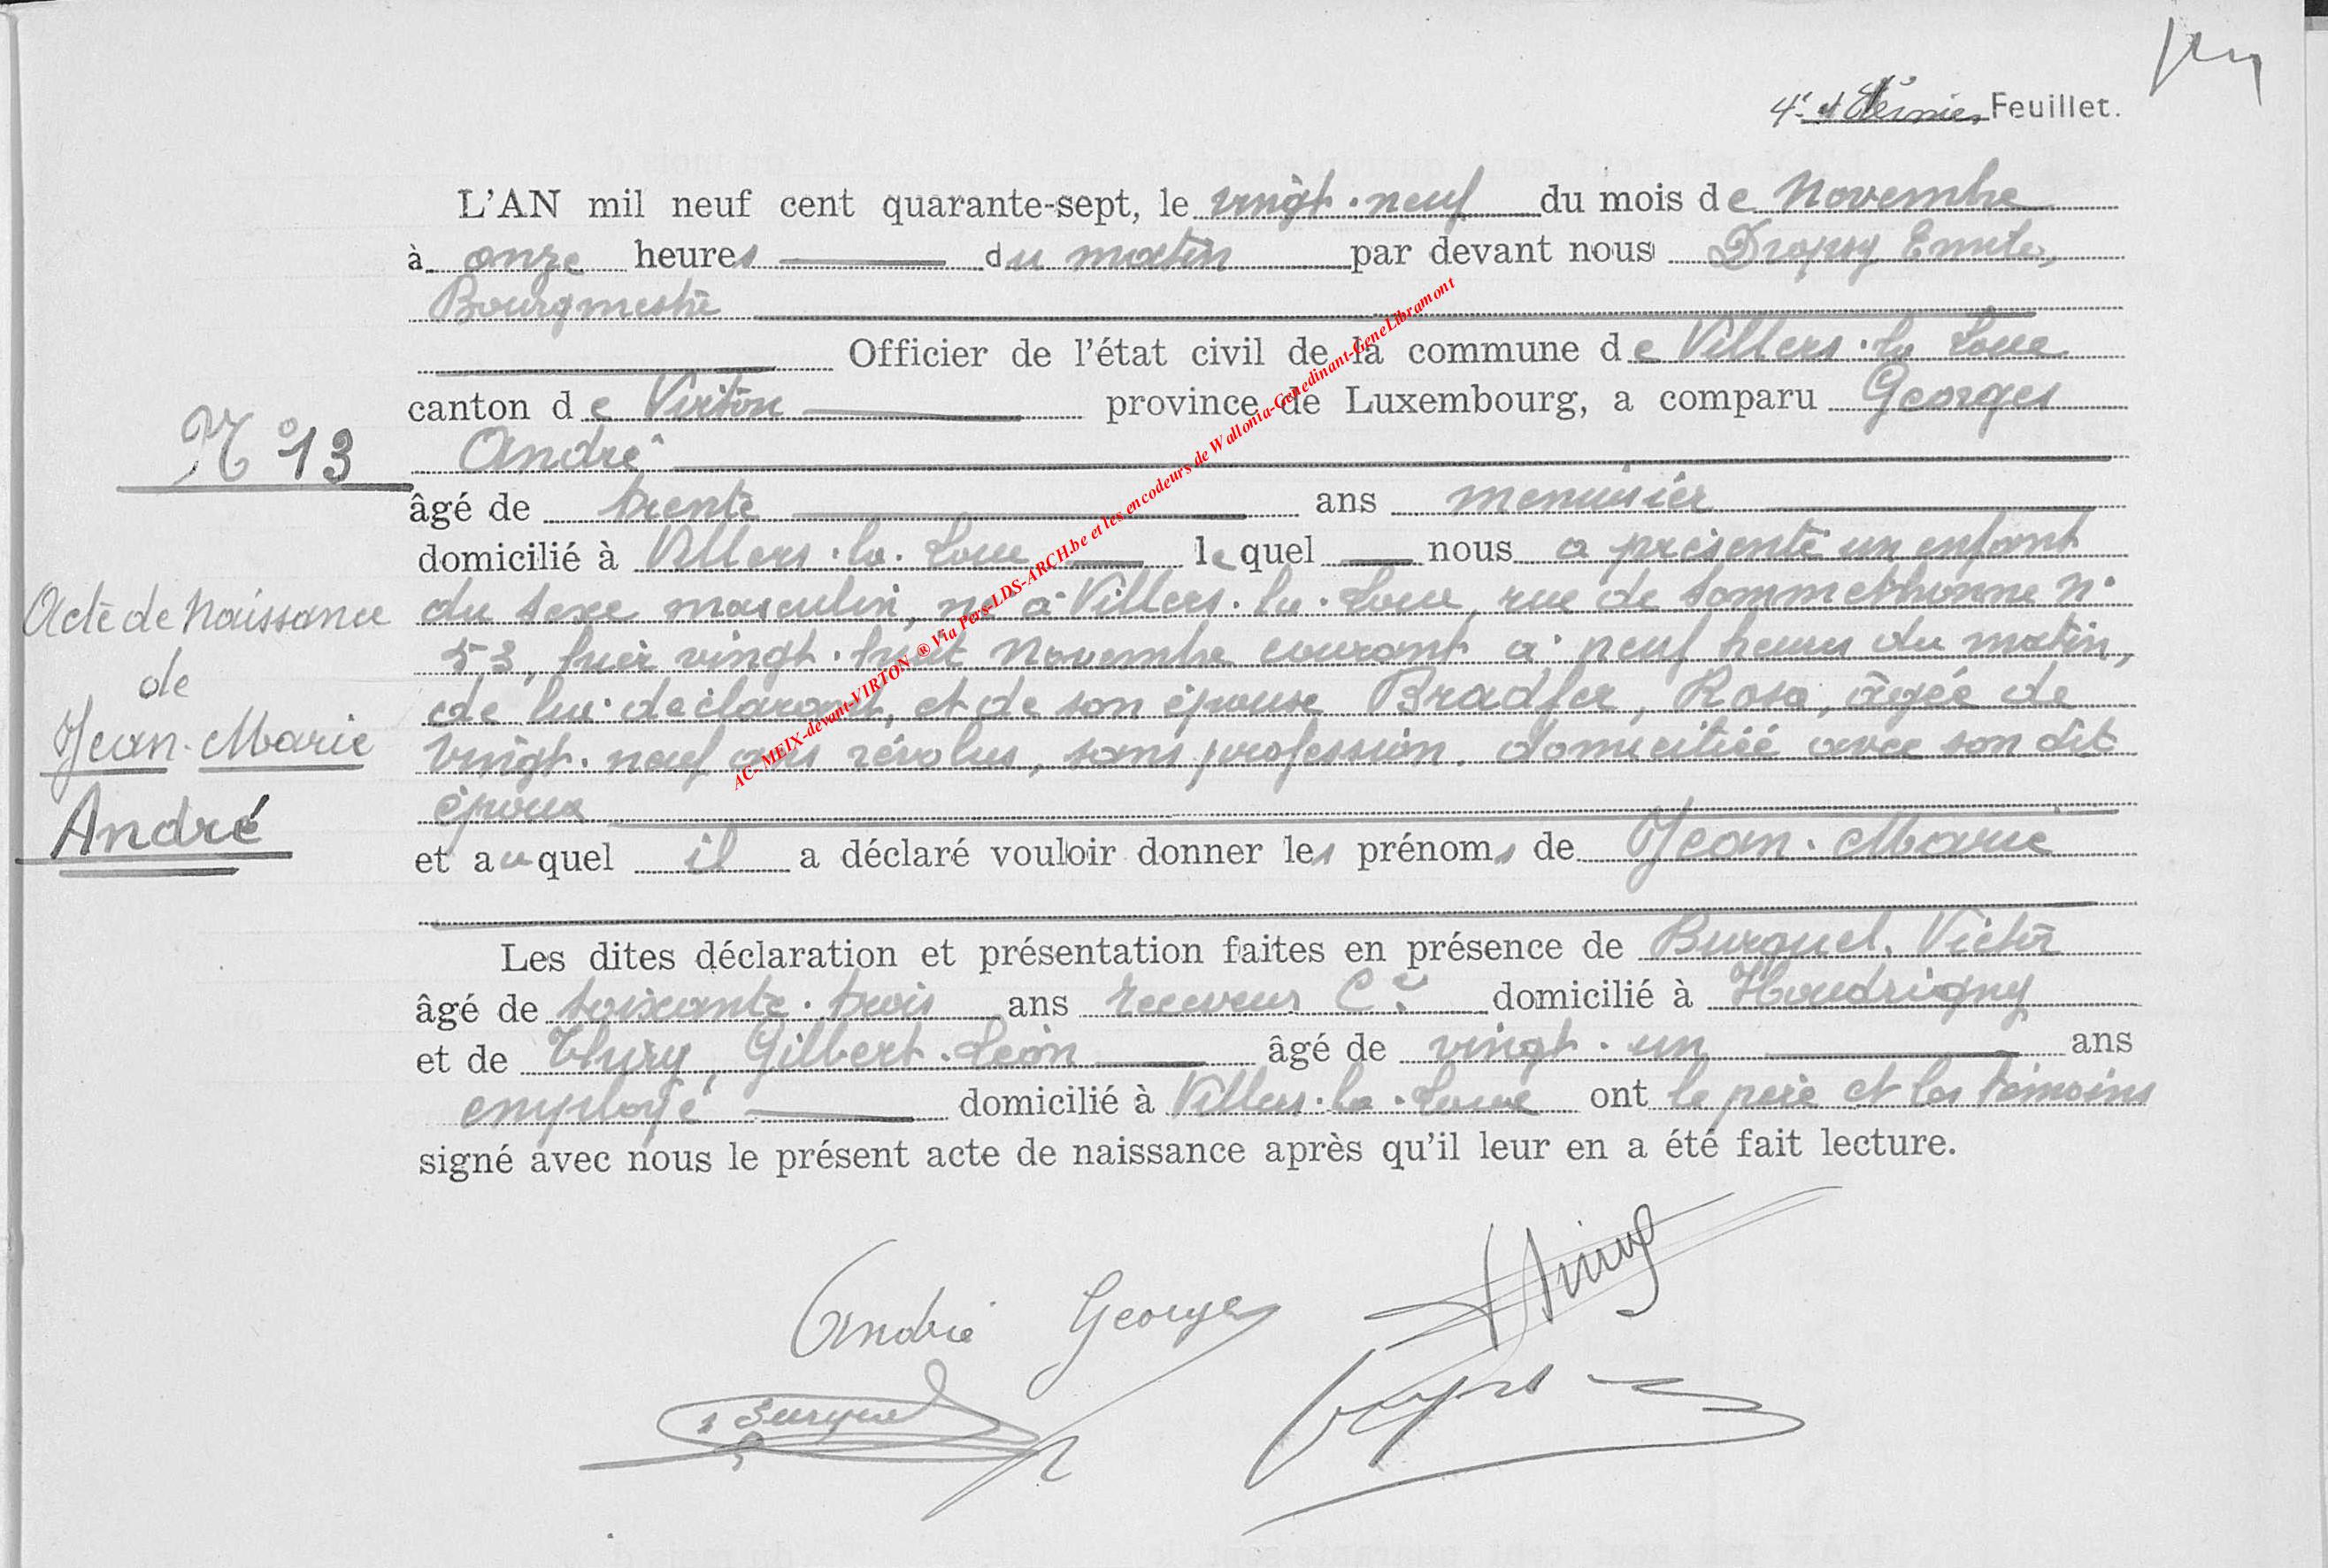 4e et Dernier Feuillet.
L'AN mil neuf cent quarante-sept, le vingt-neuf du mois de Novembre
à onze heures du matin par devant nous Dropsy Emile,
Bourgmestre
Officier de l'état civil de la commune de Villers-la-Loue
canton de Virton province de Luxembourg, a comparu Georges
André
âgé de trente ans menuisier
domicilié à Villers-la-Loue lequel nous a présenté un enfant
du sexe masculin, né à Villers-la-Loue, rue de Sommethonne N°
53, hier vingt-huit Novembre courant à neuf heures du matin,
de lui déclarant, et de son épouse Bradfer, Rosa, âgée de
vingt-neuf ans révolus, sans profession, domiciliée avec son dit
époux
et auquel il a déclaré vouloir donner les prénoms de Jean-Marie
Les dites déclaration et présentation faites en présence de Burquel, Victor
âgé de soixante-trois ans receveur Cal domicilié à Houdrigny
et de Thiry, Gilbert-Léon âgé de vingt-un ans
employé domicilié à Villers-la-Loue ont le père et les témoins
signé avec nous le présent acte de naissance après qu'il leur en a été fait lecture.
N° 13
Acte de Naissance
de
Jean-Marie
André
AC-MEIX-devant-VIRTON ® Via Pers-LDS-ARCH.be et les encodeurs de Wallonia-Genedinant-GeneLibramont
André Georges
Burquel